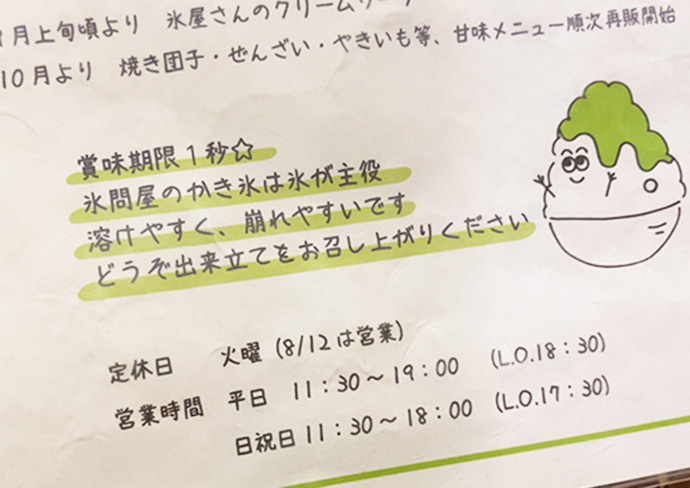 月上旬頃より 氷屋さんのクリームソーダ
10月より 焼き団子・ぜんざい・やきいも等、甘味メニュー順次再販開始
賞味期限1秒☆
氷問屋のかき氷は氷が主役
溶けやすく、崩れやすいです
どうぞ出来立てをお召し上がりください
定休日 火曜(8/12は営業)
営業時間 平日 11:30~19:00 (L.O.18:30)
日祝日 11:30~18:00 (L.O.17:30)